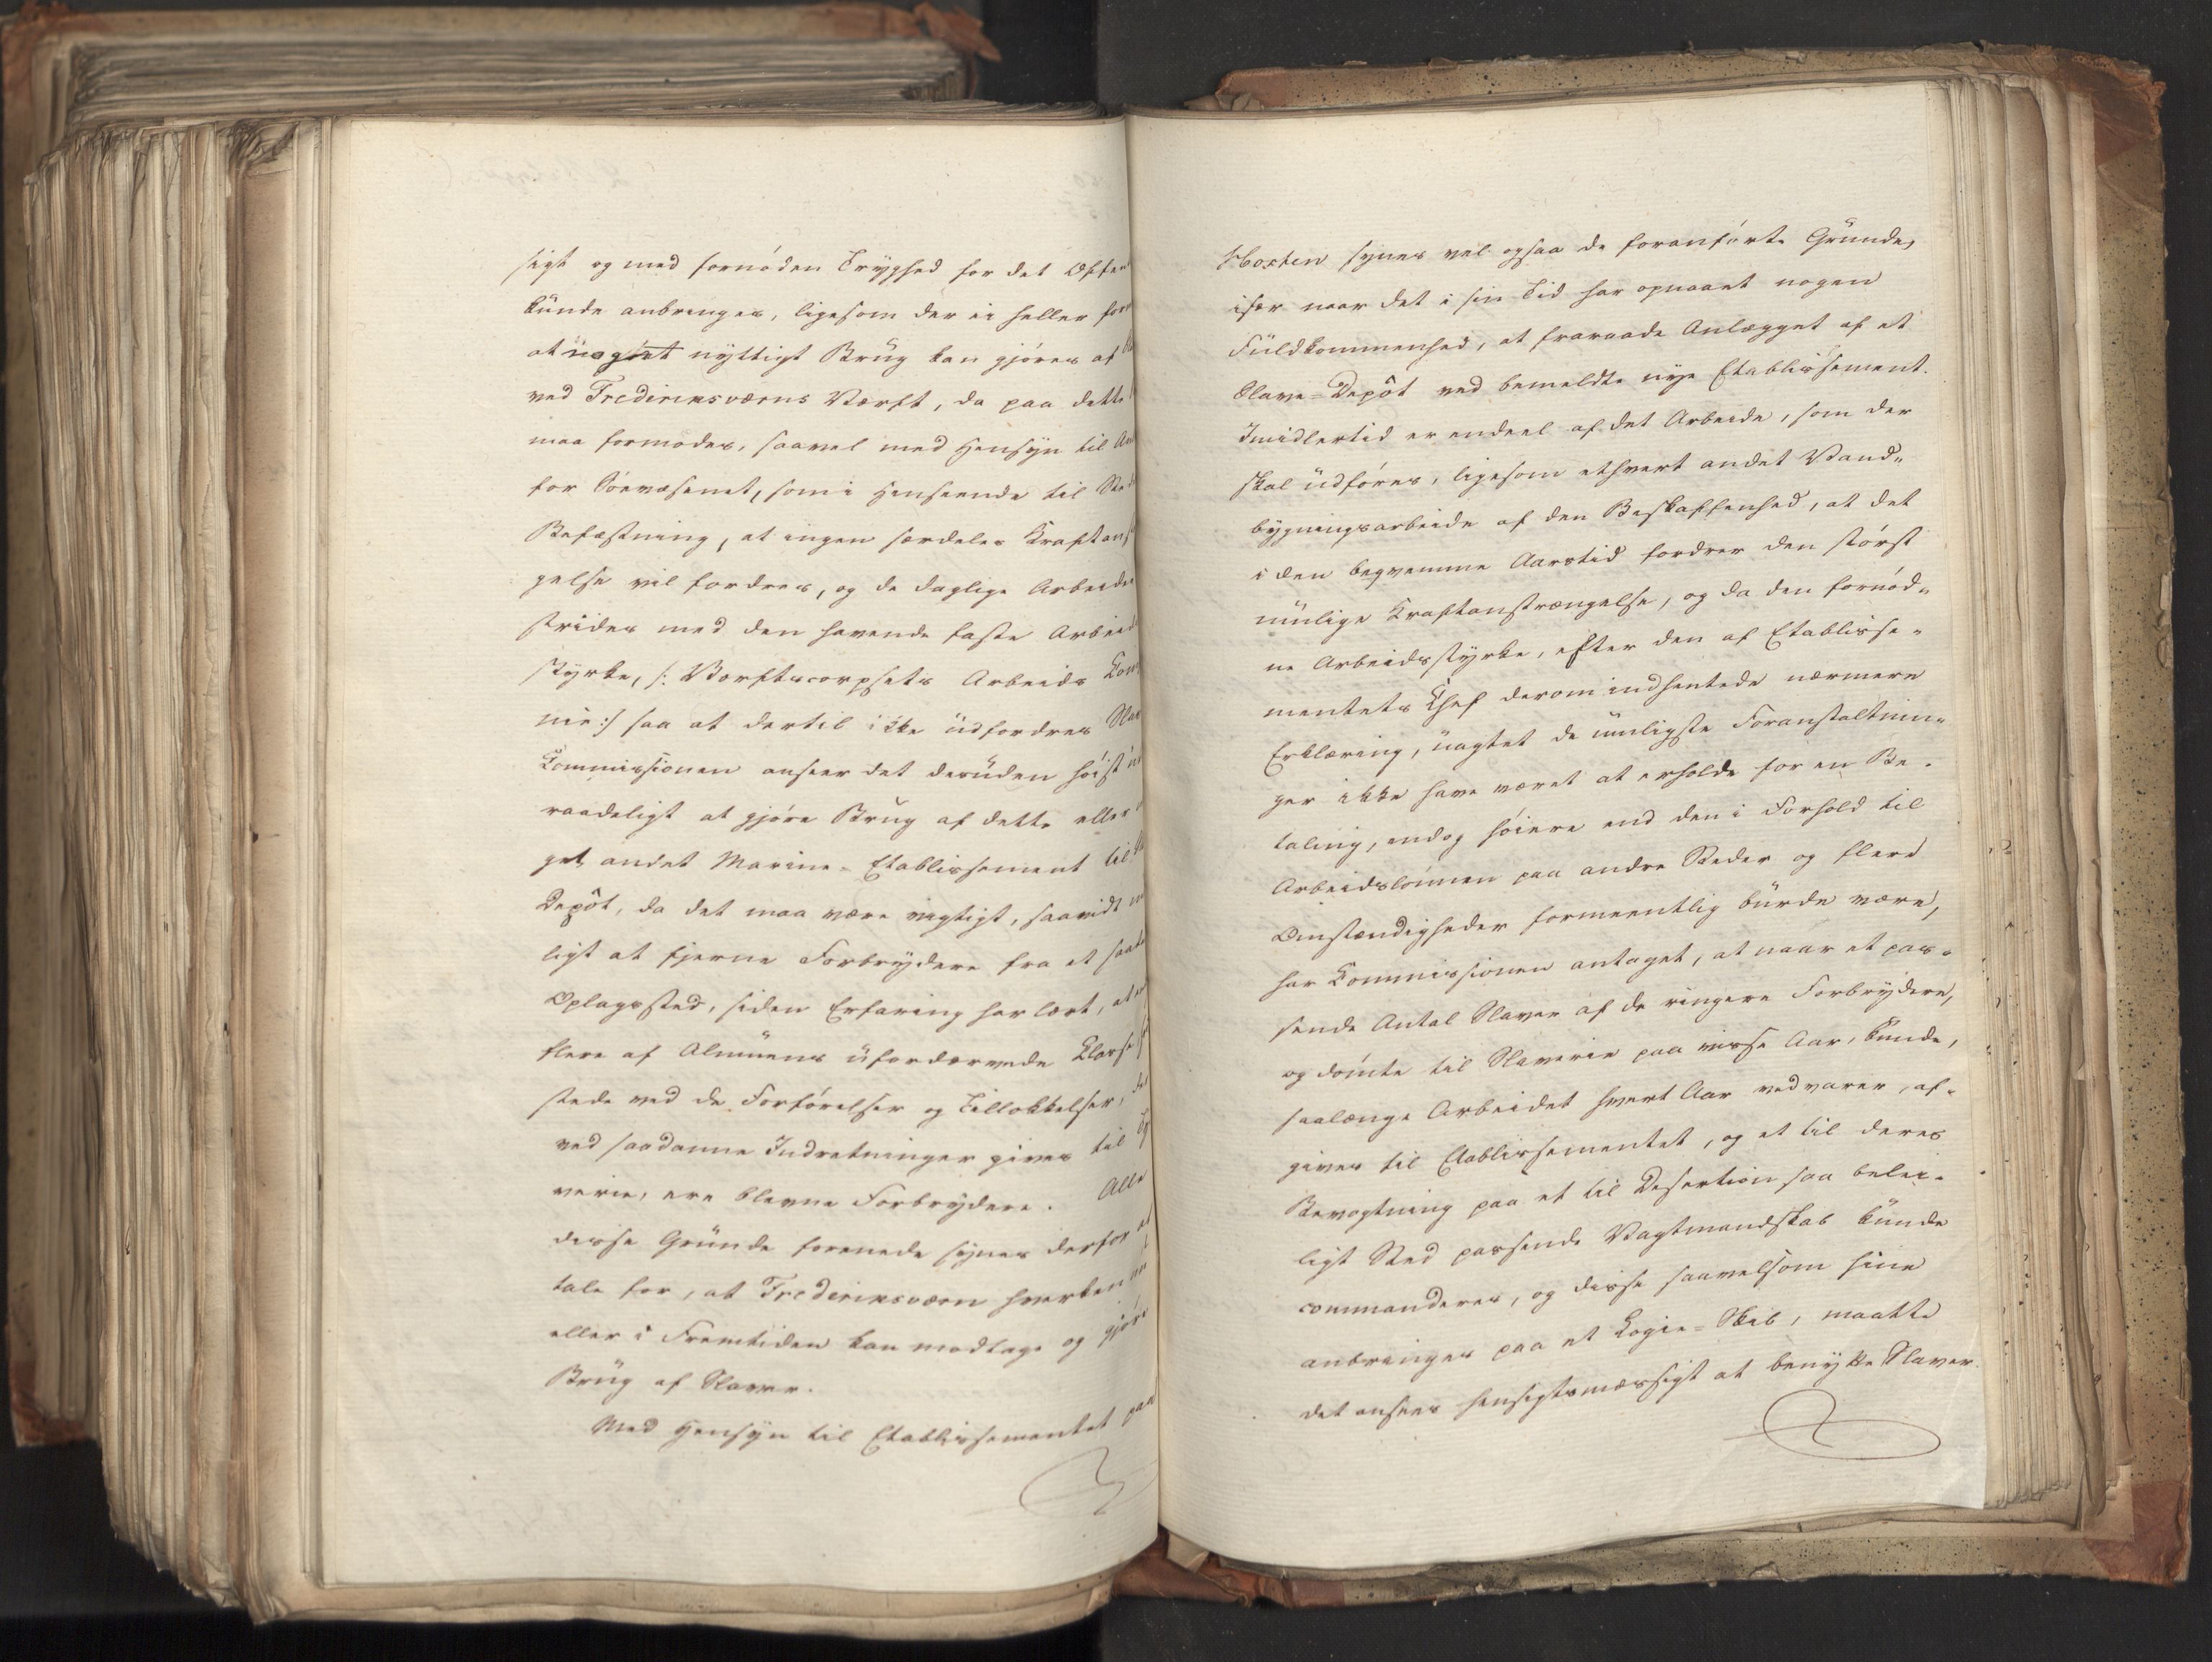 sigt og med fornøden Tryghed for det Offen
kunde anbringes, ligesom der ei heller for
at nogået nyttigt Brug kan gjøres af
ved Frederiksværns Værft, da paa dette
maa formodes, saavel med Hensyn til An
for Søevæsenet, som i Henseende til Ste
Befæstning, at ingen særdeles Kraftans
gelse vil fordres, og de daglige Arbeider
strides med den havende faste Arbeids
styrke, /: Værftscorpsets Arbeids Kom
nie :/ saa at dertil ikke udfordres Slav
Commissionen anseer det desuden høist
raadeligt at gjøre Brug af dette eller
get andet Marine-Etablissement til
Depôt, da det maa være vigtigt, saavidt
ligt at fjerne Forbrydere fra et saada
Oplagssted, siden Erfaring har lært, at
flere af Almuens ufordærvede Klasse
stede ved de Forførelser og Tillokkelser,
ved saadanne Indretninger gives til Ty
verie, ere blevne Forbrydere. Alle
disse Grunde forenede synes derfor at
tale for, at Frederiksværn hverken nu
eller i Fremtiden kan modtage og gjøre
Brug af Slaver.
Med Hensyn til Etablissementet paa
Horten synes vel ogsaa de foranførte Grunde,
især naar det i sin Tid har opnaaet nogen
Fuldkommenhed, at fraraade Anlægget af et
Slave-Depôt ved bemeldte nye Etablissement.
Imidlertid er endeel af det Arbeide, som der
skal udføres, ligesom ethvert andet Vand-
bygningsarbeide af den Beskaffenhed, at det
i den beqvemme Aarstid fordrer den størst
mulige Kraftanstrængelse, og da den fornød-
ne Arbeidsstyrke, efter den af Etablisse-
mentets Chef derom indhentede nærmere
Erklæring, uagtet de muligste Foranstaltnin-
ger ikke have været at erholde for en Be-
taling, endog høiere end den i Forhold til
Arbeidslønnen paa andre Steder og flere
Omstændigheder formeentlig burde være,
har Commissionen antaget, at naar et pas-
sende Antal Slaver af de ringere Forbrydere,
og dømte til Slaverie paa visse Aar, kunde,
saalænge Arbeidet hvert Aar vedvarer, af-
gives til Etablissementet, og et til deres
Bevogtning paa et til Desertion saa belei-
ligt Sted passende Vagtmandskab kunde
commanderes, og disse saavelsom hine
anbringes paa et Logie-Skib, maatte
det ansees hensigtsmæssigt at benytte Slaver